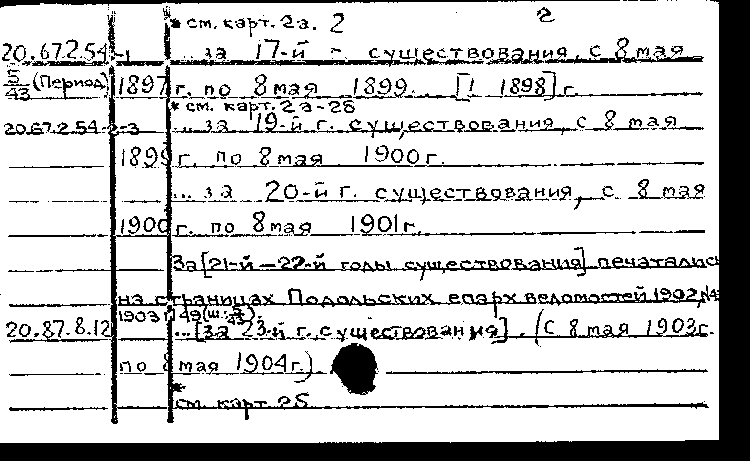 * см. карт. 2а. 2 2
20.672.54-1 ... за 17-й г. существования, с 8 мая
5/43 (Период) 1897 г. по 8 мая 1899. [! 1898] г.
* см. карт. 2а-2б
20.672.54 2-3 ... за 19-й г. существования, с 8 мая
1899 г. по 8 мая 1900 г.
... за 20-й г. существования, с 8 мая
1900 г. по 8 мая 1901 г.
За [21-й — 22-й годы существования] печатались
на страницах Подольских епарх ведомостей 1902, №
1903 № 49 (ш.
20.87.8.12 ... [за 23-й г. существования]. (С 8 мая 1903 г.
по 8 мая 1904 г.)
*
см. карт 2б